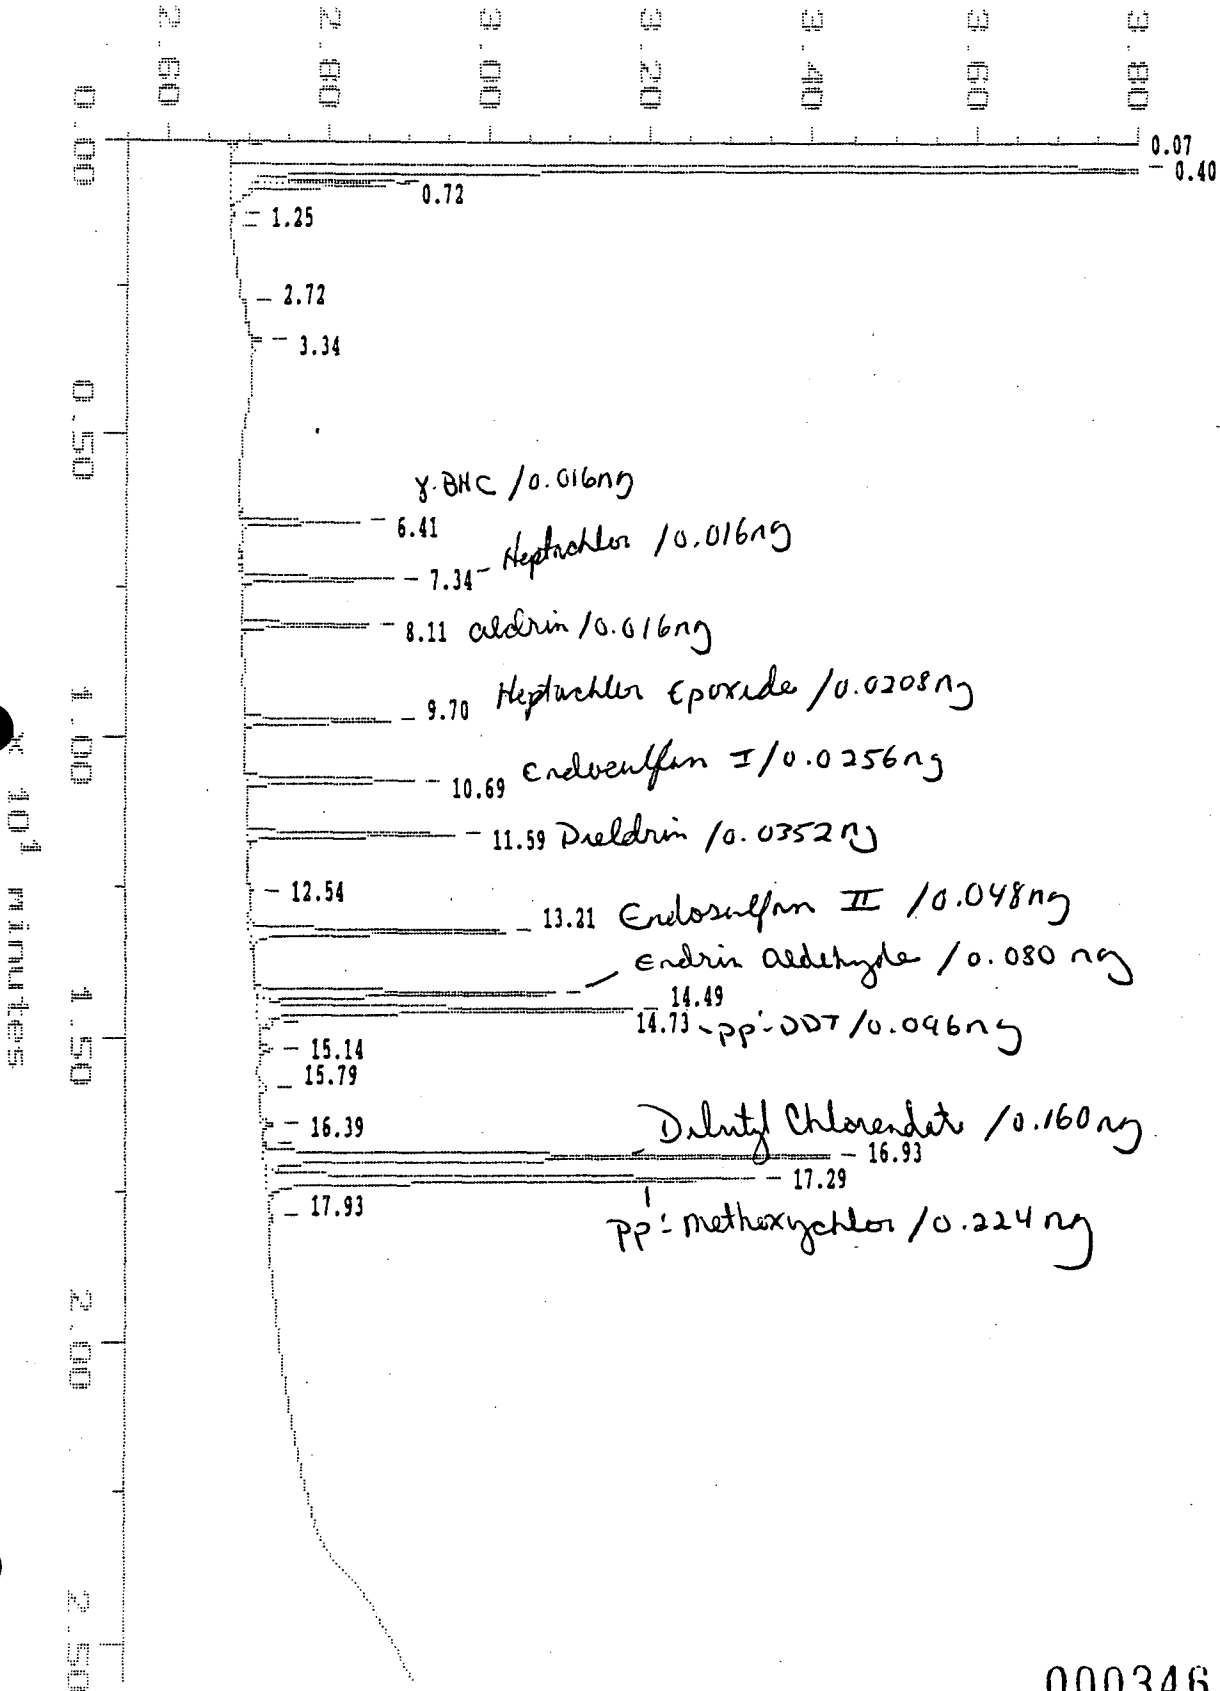 2.60
2.80
3.00
3.20
3.40
3.60
3.80
0.00
0.07
0.40
0.72
1.25
2.72
3.34
0.50
γ-BHC /0.016ng
6.41
7.34 - Heptachlor /0.016ng
8.11 aldrin /0.016ng
9.70 Heptachlor Epoxide /0.0208ng
1.00
10.69 Endosulfan I /0.0256ng
11.59 Dieldrin /0.0352ng
12.54
13.21 Endosulfan II /0.048ng
Endrin aldehyde /0.080 ng
14.49
14.73 - pp'-DDT /0.096ng
1.50
15.14
15.79
16.39
Dibutyl Chlorendate /0.160ng
16.93
17.29
17.93
pp'-methoxychlor /0.224 ng
2.00
2.50
x 10¹ minutes
000346